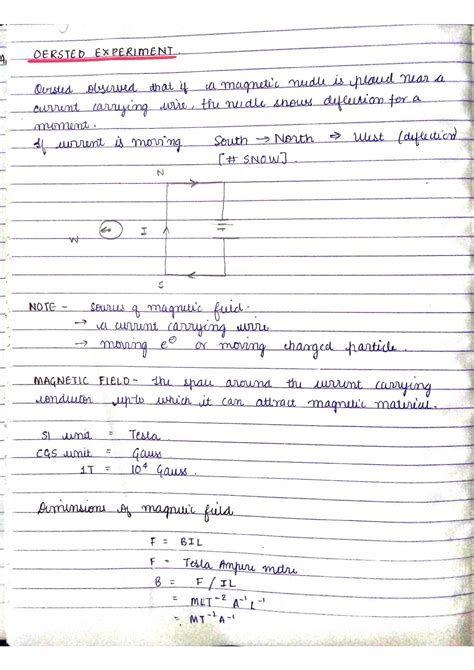 OERSTED EXPERIMENT.
Oersted observed that if a magnetic needle is placed near a
current carrying wire, the needle shows deflection for a
moment.
If current is moving South → North ⇒ West (deflection)
[# SNOW].
N
W I
S
NOTE - Sources of magnetic field -
→ a current carrying wire
→ moving e⊖ or moving changed particle.
MAGNETIC FIELD - the space around the current carrying
conductor upto which it can attract magnetic material.
SI unit = Tesla
CGS unit = Gauss
1T = 10⁴ Gauss.
Dimensions of magnetic field
F = BIL
F = Tesla Ampere metre
B = F / IL
= MLT⁻² A⁻¹ L⁻¹
= MT⁻² A⁻¹